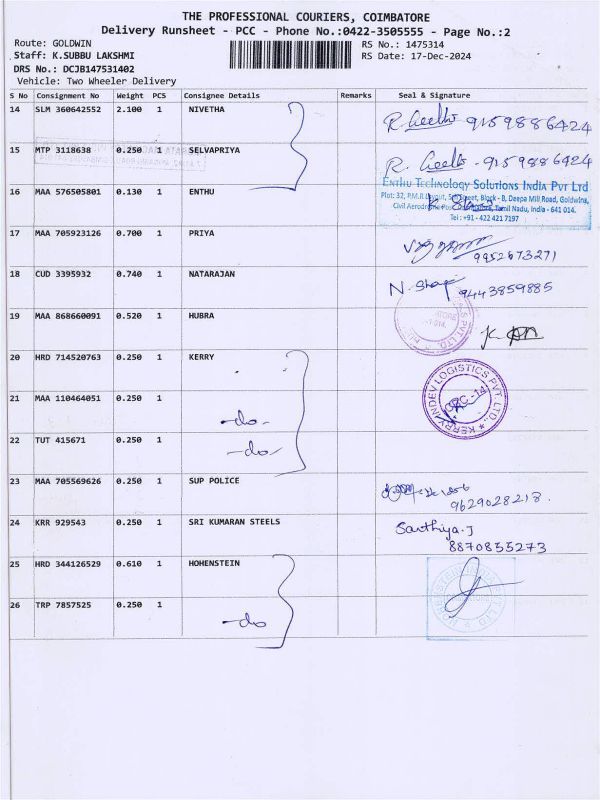 THE PROFESSIONAL COURIERS, COIMBATORE
Delivery Runsheet - PCC - Phone No.:0422-3505555 - Page No.:2
Route: GOLDWIN
RS No.: 1475314
Staff: K.SUBBU LAKSHMI
RS Date: 17-Dec-2024
DRS No.: DCJB147531402
Vehicle: Two Wheeler Delivery
S No Consignment No Weight PCS Consignee Details Remarks Seal & Signature
14 SLM 360642552 2.100 1 NIVETHA
9159886424
15 MTP 3118638 0.250 1 SELVAPRIYA
9159886424
16 MAA 576505801 0.130 1 ENTHU
ENTHU Technology Solutions India Pvt Ltd
Plot: 32, P.M.R Layout, Street, Block - B, Deepa Mill Road, Goldwins,
Civil Aerodrome Post, Coimbatore, Tamil Nadu, India - 641 014.
Tel : +91 - 422 421 7197
17 MAA 705923126 0.700 1 PRIYA
9952673271
18 CUD 3395932 0.740 1 NATARAJAN
9443859885
19 MAA 868660091 0.520 1 HUBRA
20 HRD 714520763 0.250 1 KERRY
KERRY INDEV LOGISTICS PVT. LTD.
21 MAA 110464051 0.250 1
-do-
22 TUT 415671 0.250 1
-do-
23 MAA 705569626 0.250 1 SUP POLICE
9629028218.
24 KRR 929543 0.250 1 SRI KUMARAN STEELS
Santhiya.J
8870855273
25 HRD 344126529 0.610 1 HOHENSTEIN
26 TRP 7857525 0.250 1
-do